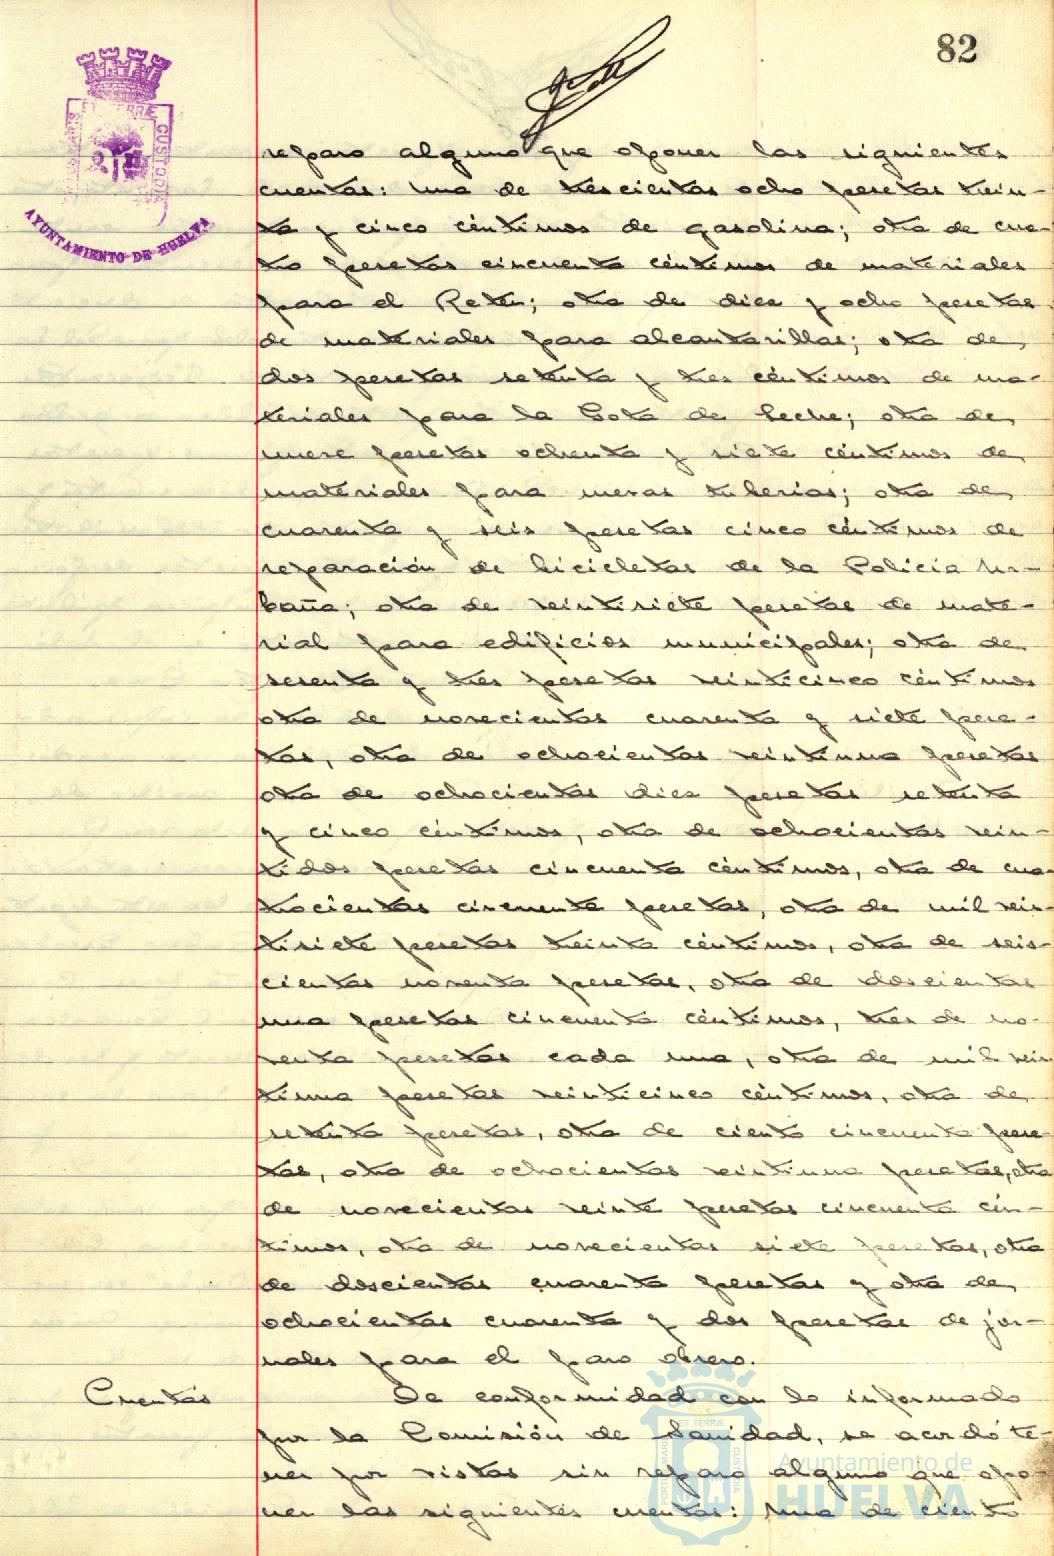 82
AYUNTAMIENTO DE HUELVA
reparo alguno que oponer las siguientes
cuentas: una de trescientas ocho pesetas trein-
ta y cinco céntimos de gasolina; otra de cua-
tro pesetas cincuenta céntimos de materiales
para el Retén; otra de diez y ocho pesetas
de materiales para alcantarillas; otra de
dos pesetas setenta y tres céntimos de ma-
teriales para la Gota de Leche; otra de
nueve pesetas ochenta y siete céntimos de
materiales para nuevas tuberías; otra de
cuarenta y seis pesetas cinco céntimos de
reparación de bicicletas de la Policía Ur-
bana; otra de veintisiete pesetas de mate-
rial para edificios municipales; otra de
sesenta y tres pesetas veinticinco céntimos
otra de novecientas cuarenta y siete pese-
tas, otra de ochocientas veintiuna pesetas
otra de ochocientas diez pesetas setenta
y cinco céntimos, otra de ochocientas vein-
tidos pesetas cincuenta céntimos, otra de cua-
trocientas cincuenta pesetas, otra de mil vein-
tisiete pesetas treinta céntimos, otra de seis-
cientas noventa pesetas, otra de doscientas
una pesetas cincuenta céntimos, tres de no-
venta pesetas cada una, otra de mil vein
tiuna pesetas veinticinco céntimos, otra de
setenta pesetas, otra de ciento cincuenta pese-
tas, otra de ochocientas veintiuna pesetas, otra
de novecientas veinte pesetas cincuenta cén-
timos, otra de novecientas siete pesetas, otra
de doscientas cuarenta pesetas y otra de
ochocientas cuarenta y dos pesetas de jor-
nales para el paro obrero.
Cuentas De conformidad con lo informado
por la Comisión de Sanidad, se acordó te-
ner por vistas sin reparo alguno que opo-
ner las siguientes cuentas: Una de ciento
Ayuntamiento de
HUELVA